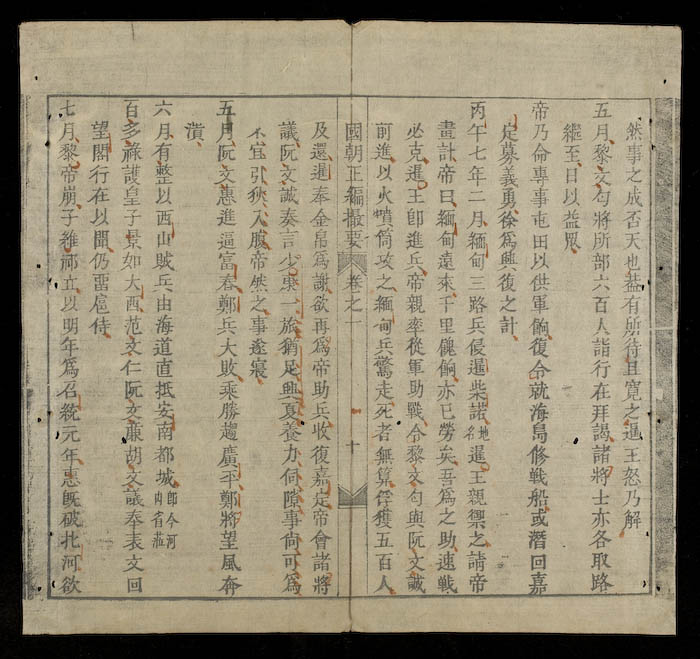 然事之成否天也盖有所待且寬之暹王怒乃解
五月黎文勻將所部六百人詣行在拜謁諸將士亦各取路
繼至日以益眾
帝乃命專事屯田以供軍餉復令就海島修戰船或潛回嘉
定募義勇徐爲興復之計
丙午七年二月緬甸三路兵侵暹柴諾地名暹王親禦之請帝
畫計帝曰緬甸遠來千里餽餉亦已勞矣吾爲之助速戰
必克暹王卽進兵帝親率從軍助戰令黎文勻與阮文誠
前進以火噴筒攻之緬甸兵驚走死者無算俘獲五百人
國朝正編撮要 卷之一 十
及還暹奉金帛爲謝欲再爲帝助兵收復嘉定帝會諸將
議阮文誠奏言少康一旅猶足興夏養力伺隙事尙可爲
不宜引狄入腹帝然之事遂寢
五月阮文惠進逼富春鄭兵大敗乘勝趨廣平鄭將望風奔
潰
六月有整以西山賊兵由海道直抵安南都城卽今河內省蒞
百多祿護皇子景如大西范文仁阮文廉胡文議奉表文回
望閣行在以聞仍畱扈侍
七月黎帝崩子維祁立以明年爲召統元年惠既破北河欲